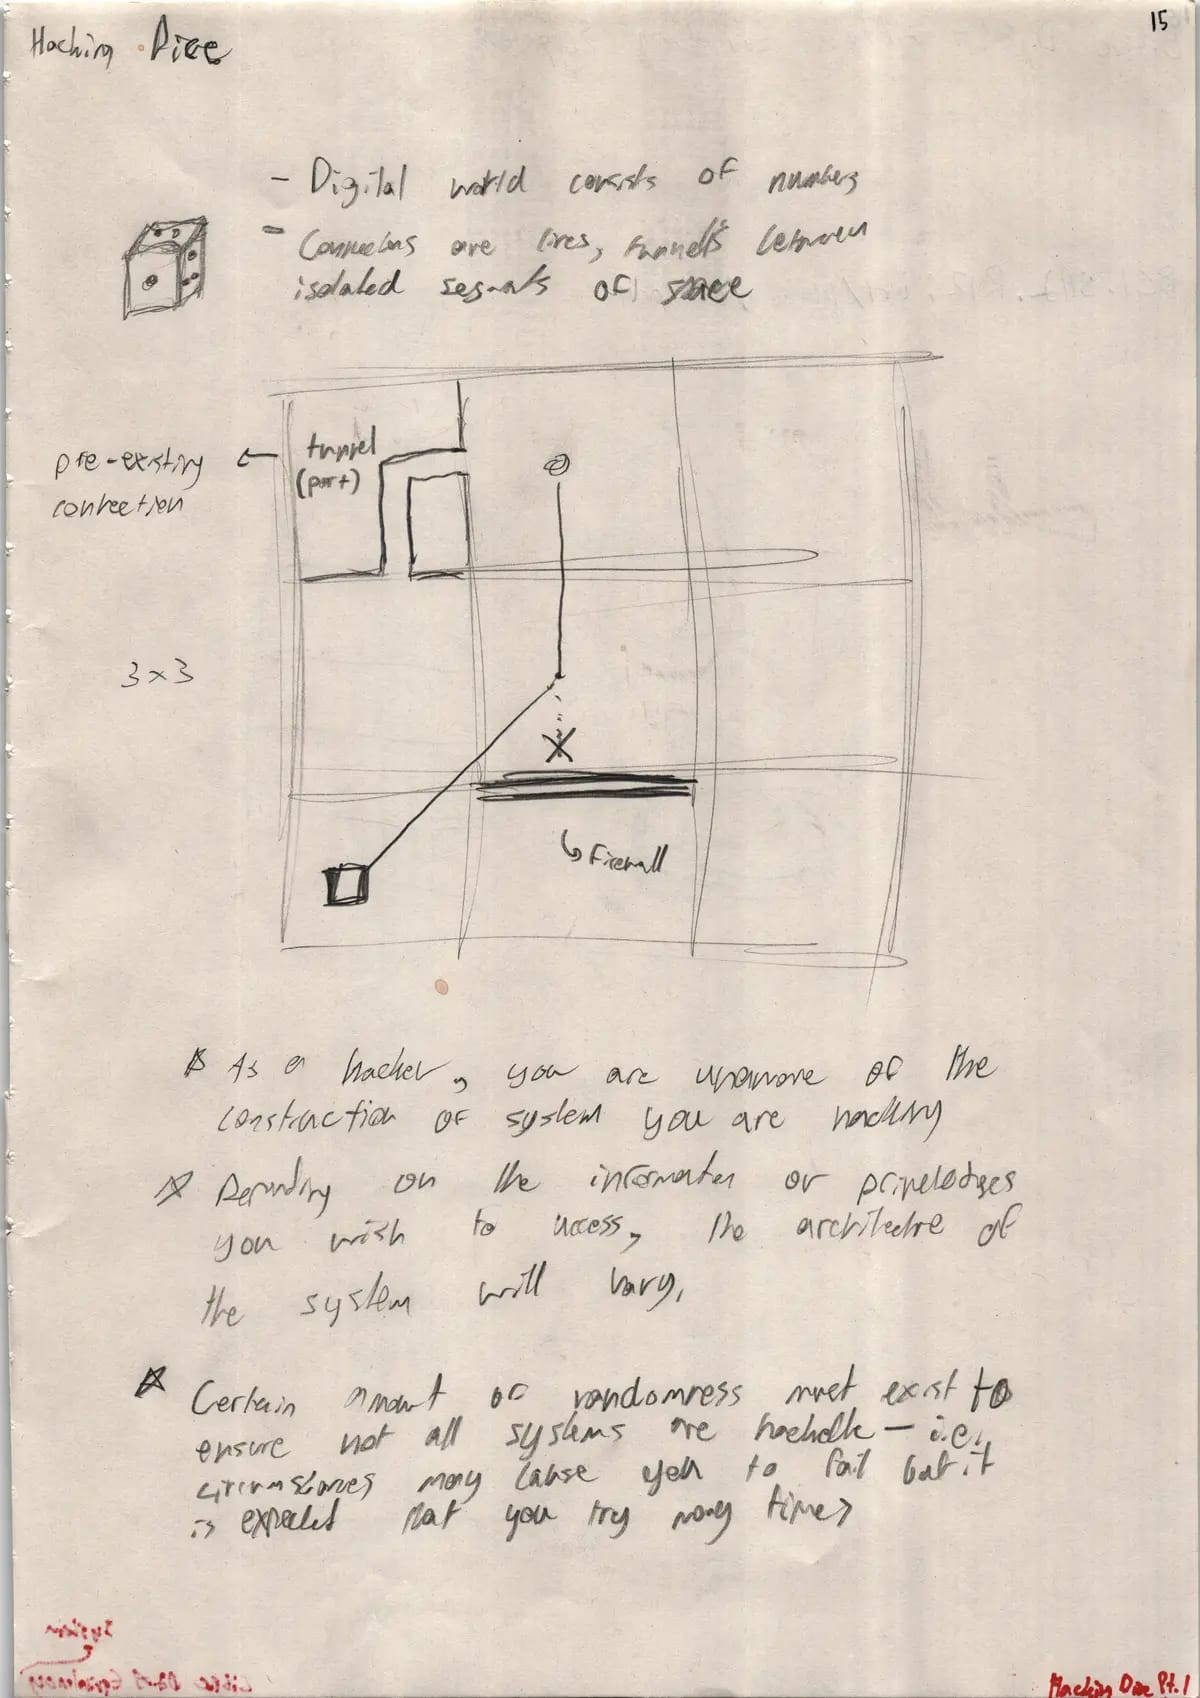 15
Hacking Dice
- Digital world consists of numbers
- Connections are lines, tunnels between
isolated segments of space
pre-existing
connection
tunnel
(port)
3x3
Firewall
As a hacker, you are unaware of the
construction of system you are hacking
Depending on the information or priveledges
you wish to access, the architecture of
the system will vary,
Certain amount of randomness must exist to
ensure not all systems are hackable - i.e.
circumstances may cause you to fail but it
is expected that you try many times
System
Hacking Dice Pt. 1